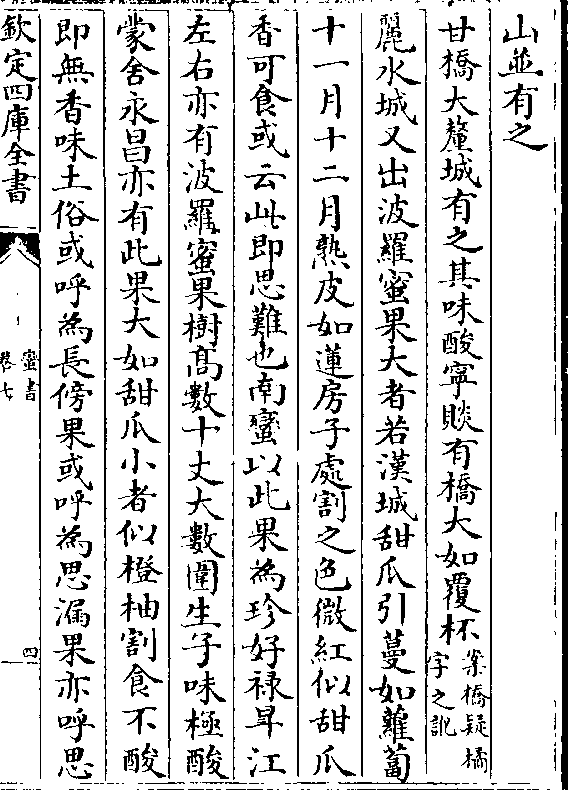 山並有之
甘橋大釐城有之其味酸寧賧有橋大如覆杯案橋疑橘
字之訛
麗水城又出波羅蜜果大者若漢城甜瓜引蔓如蘿蔔
十一月十二月熟皮如蓮房子處割之色微紅似甜瓜
香可食或云此即思難也南蠻以此果為珍好禄𤰞江
左右亦有波羅蜜果樹髙數十丈大數圍生子味極酸
蒙舍永昌亦有此果大如甜瓜小者似橙柚割食不酸
即無香味土俗或呼為長傍果或呼為思漏果亦呼思
欽定四庫全書
蠻書
卷七
四